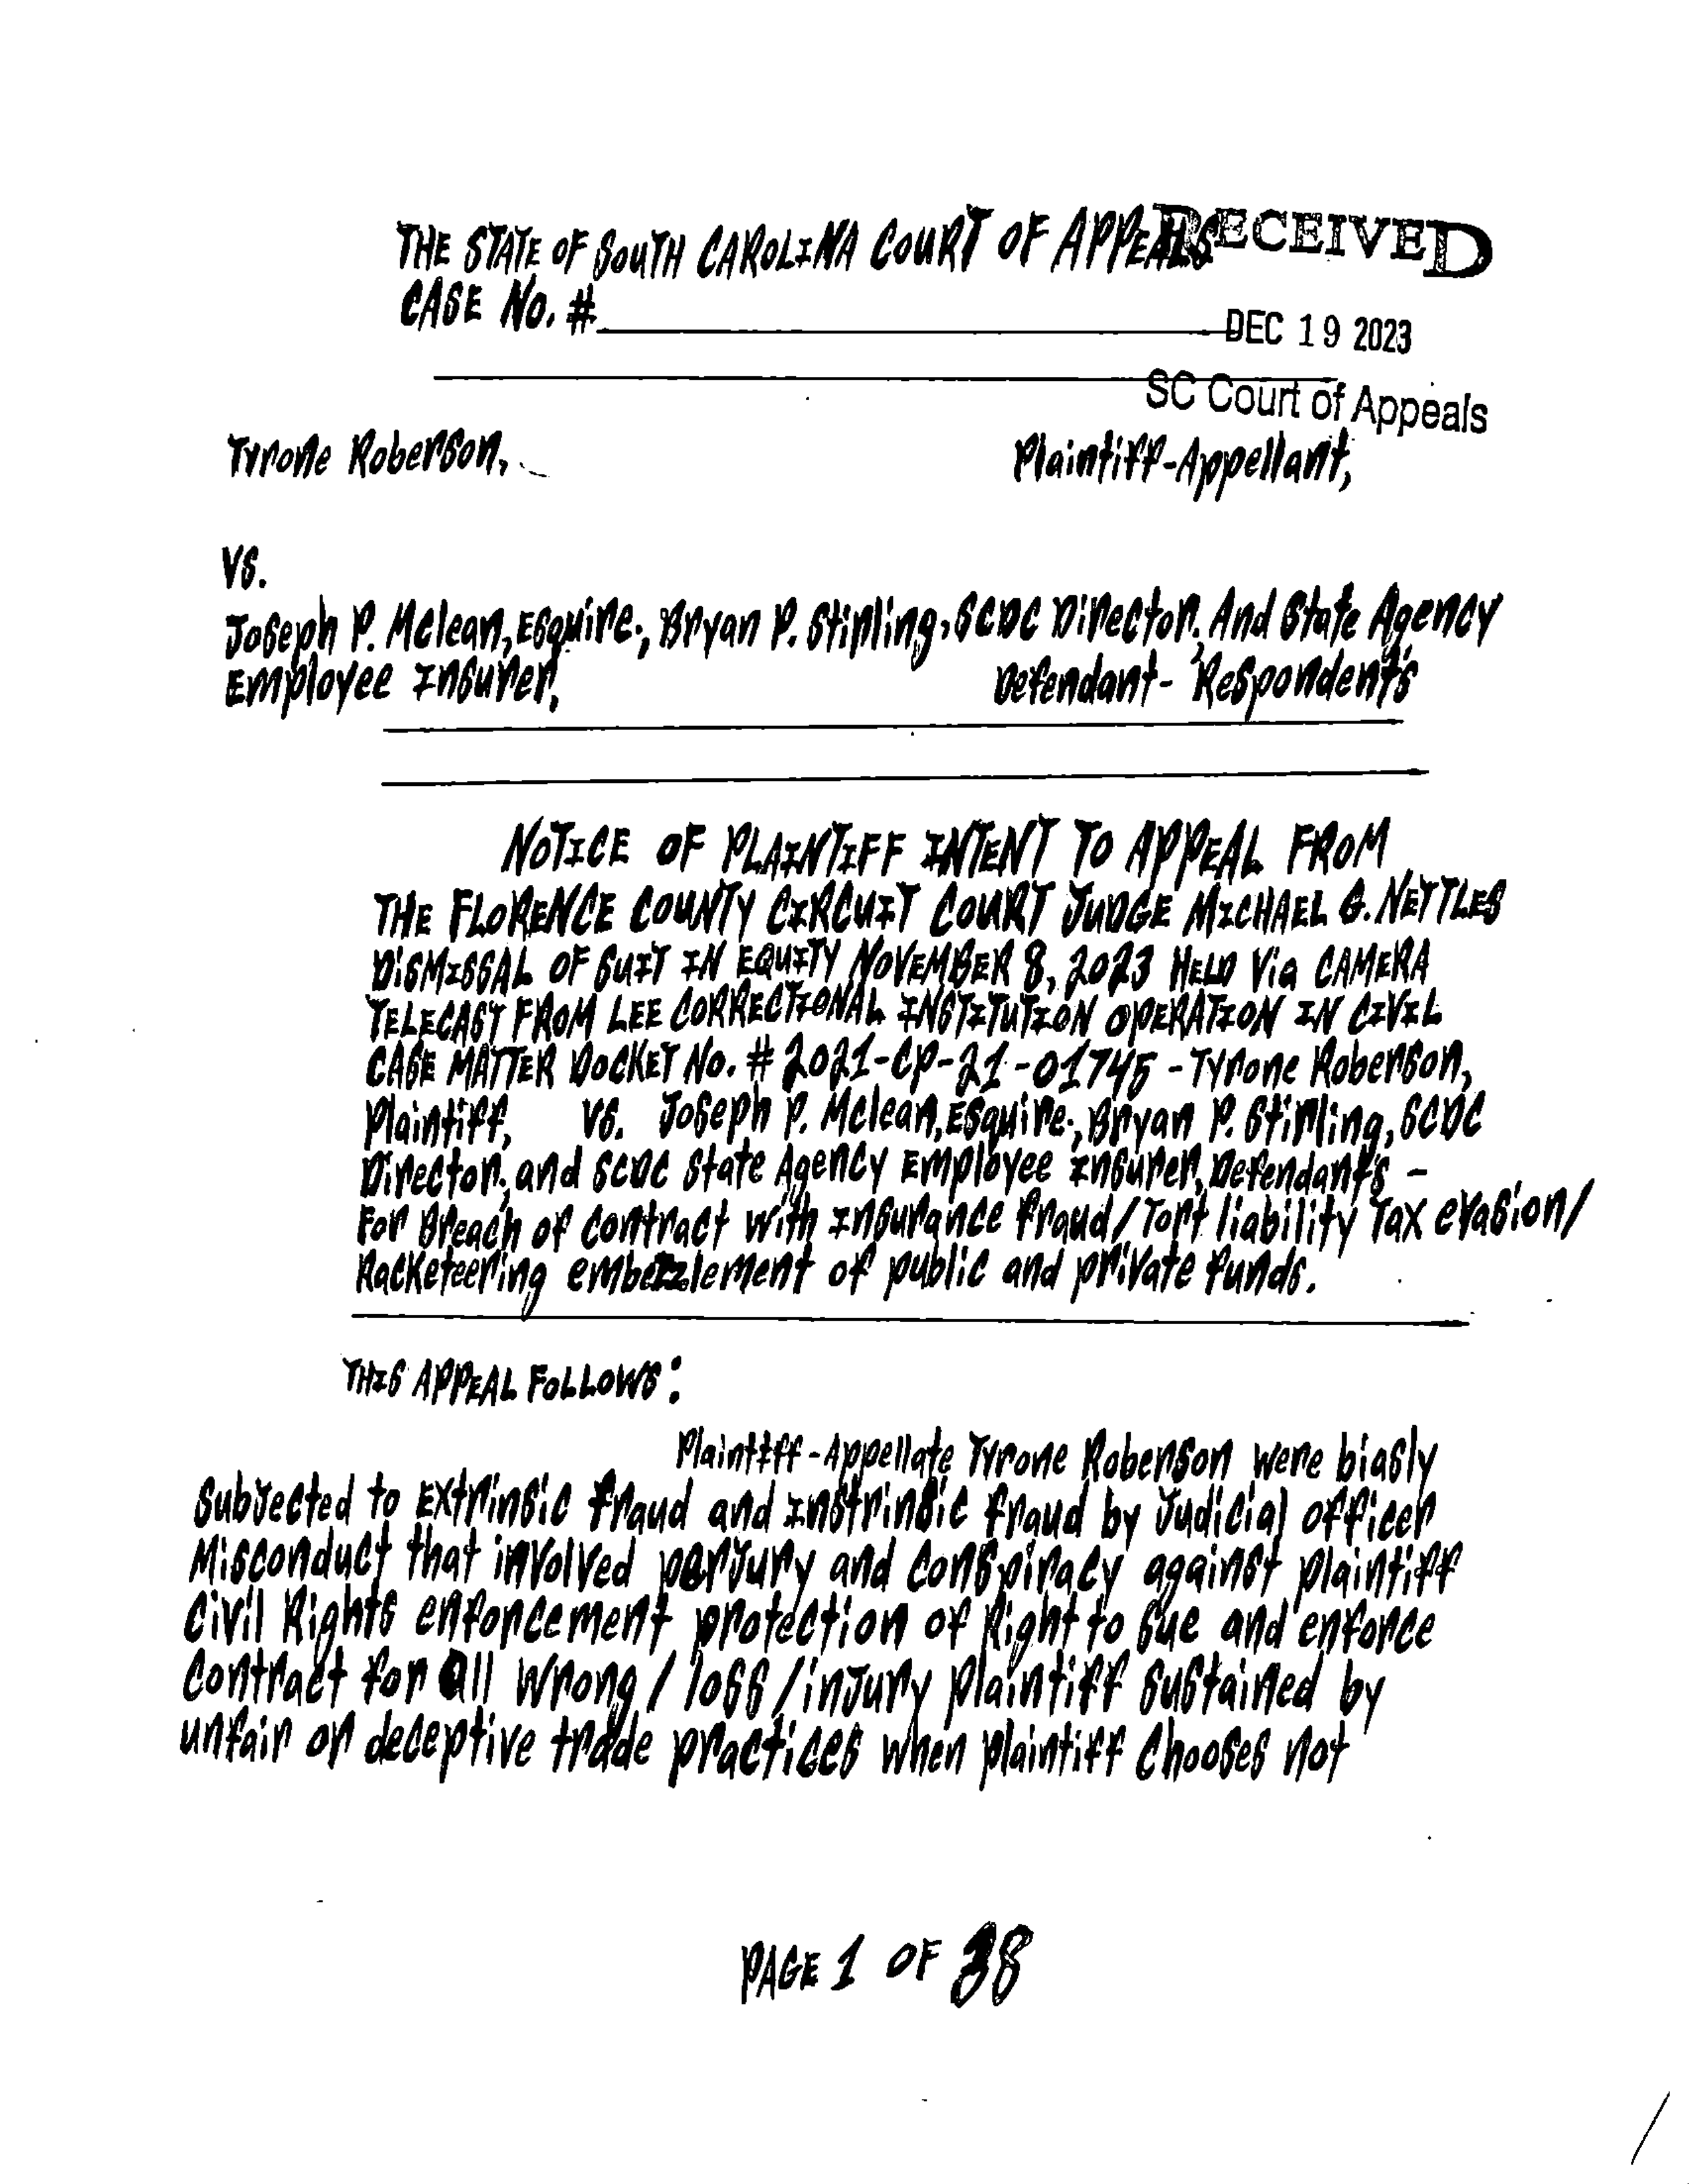 THE STATE OF SOUTH CAROLINA COURT OF APPEALS
RECEIVED
CASE No. #
DEC 19 2023
SC Court of Appeals
Tyrone Roberson,
Plaintiff-Appellant,
VS.
Joseph P. Mclean, Esquire., Bryan P. Stirling, SCDC Director, And State Agency
Employee Insurer,
Defendant-Respondent's
NOTICE OF PLAINTIFF INTENT TO APPEAL FROM
THE FLORENCE COUNTY CIRCUIT COURT JUDGE MICHAEL G. NETTLES
DISMISSAL OF SUIT IN EQUITY NOVEMBER 8, 2023 HELD Via CAMERA
TELECAST FROM LEE CORRECTIONAL INSTITUTION OPERATION IN CIVIL
CASE MATTER DOCKET No. # 2021-CP-21-01745 - Tyrone Roberson,
Plaintiff, VS. Joseph P. Mclean, Esquire., Bryan P. Stirling, SCDC
Director; and SCDC State Agency Employee Insurer, Defendant's -
For Breach of contract with Insurance fraud/Tort liability Tax evasion/
Racketeering embezzlement of public and private funds.
THIS APPEAL FOLLOWS:
Plaintiff-Appellate Tyrone Roberson were biasly
Subjected to Extrinsic fraud and Instrinsic fraud by Judicial officer
Misconduct that involved perjury and conspiracy against plaintiff
Civil Rights enforcement protection of Right to Sue and enforce
Contract for all wrong/loss/injury plaintiff sustained by
unfair or deceptive trade practices when plaintiff Chooses not
PAGE 1 OF 38